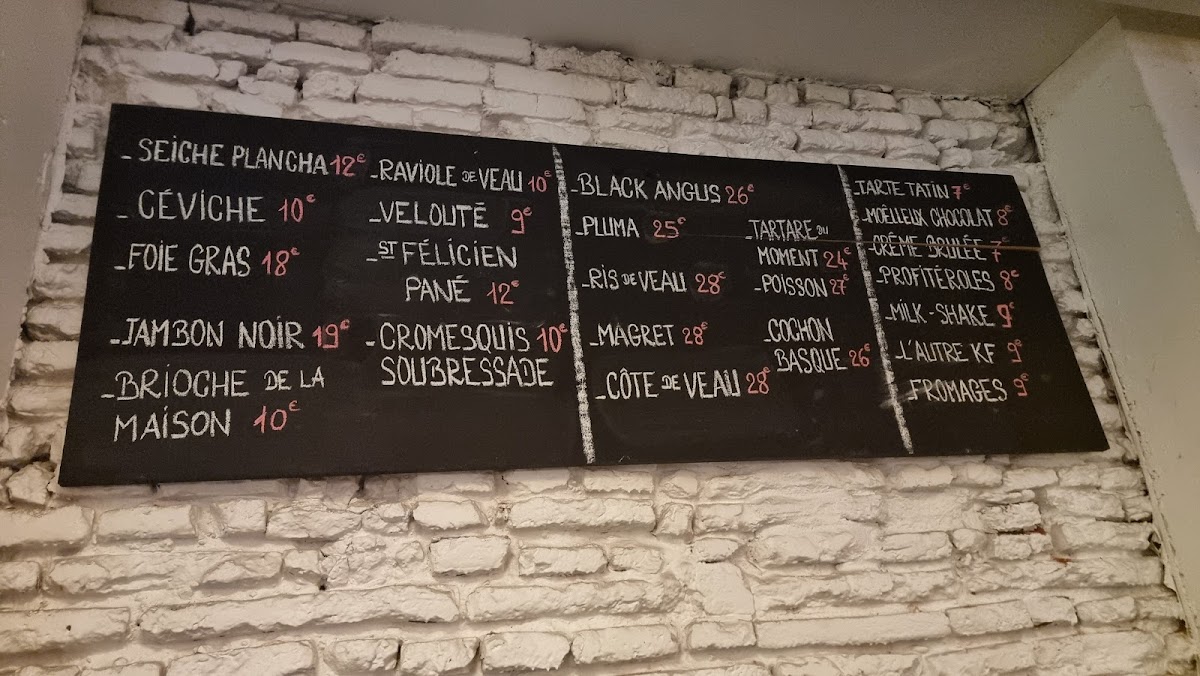 - SEICHE PLANCHA 12€
- CÉVICHE 10€
- FOIE GRAS 18€
- JAMBON NOIR 19€
- BRIOCHE DE LA
MAISON 10€
- RAVIOLE DE VEAU 10€
- VELOUTÉ 9€
- ST FÉLICIEN
PANÉ 12€
- CROMESQUIS 10€
SOUBRESSADE
- BLACK ANGUS 26€
- PLUMA 25€
- RIS DE VEAU 28€
- MAGRET 28€
- CÔTE DE VEAU 28€
- TARTARE DU
MOMENT 24€
- POISSON 27€
- COCHON
BASQUE 26€
- TARTE TATIN 7€
- MOËLLEUX CHOCOLAT 8€
- CRÊME BRULÉE 7€
- PROFITÉROLES 8€
- MILK-SHAKE 9€
- L'AUTRE KF 9€
- FROMAGES 9€